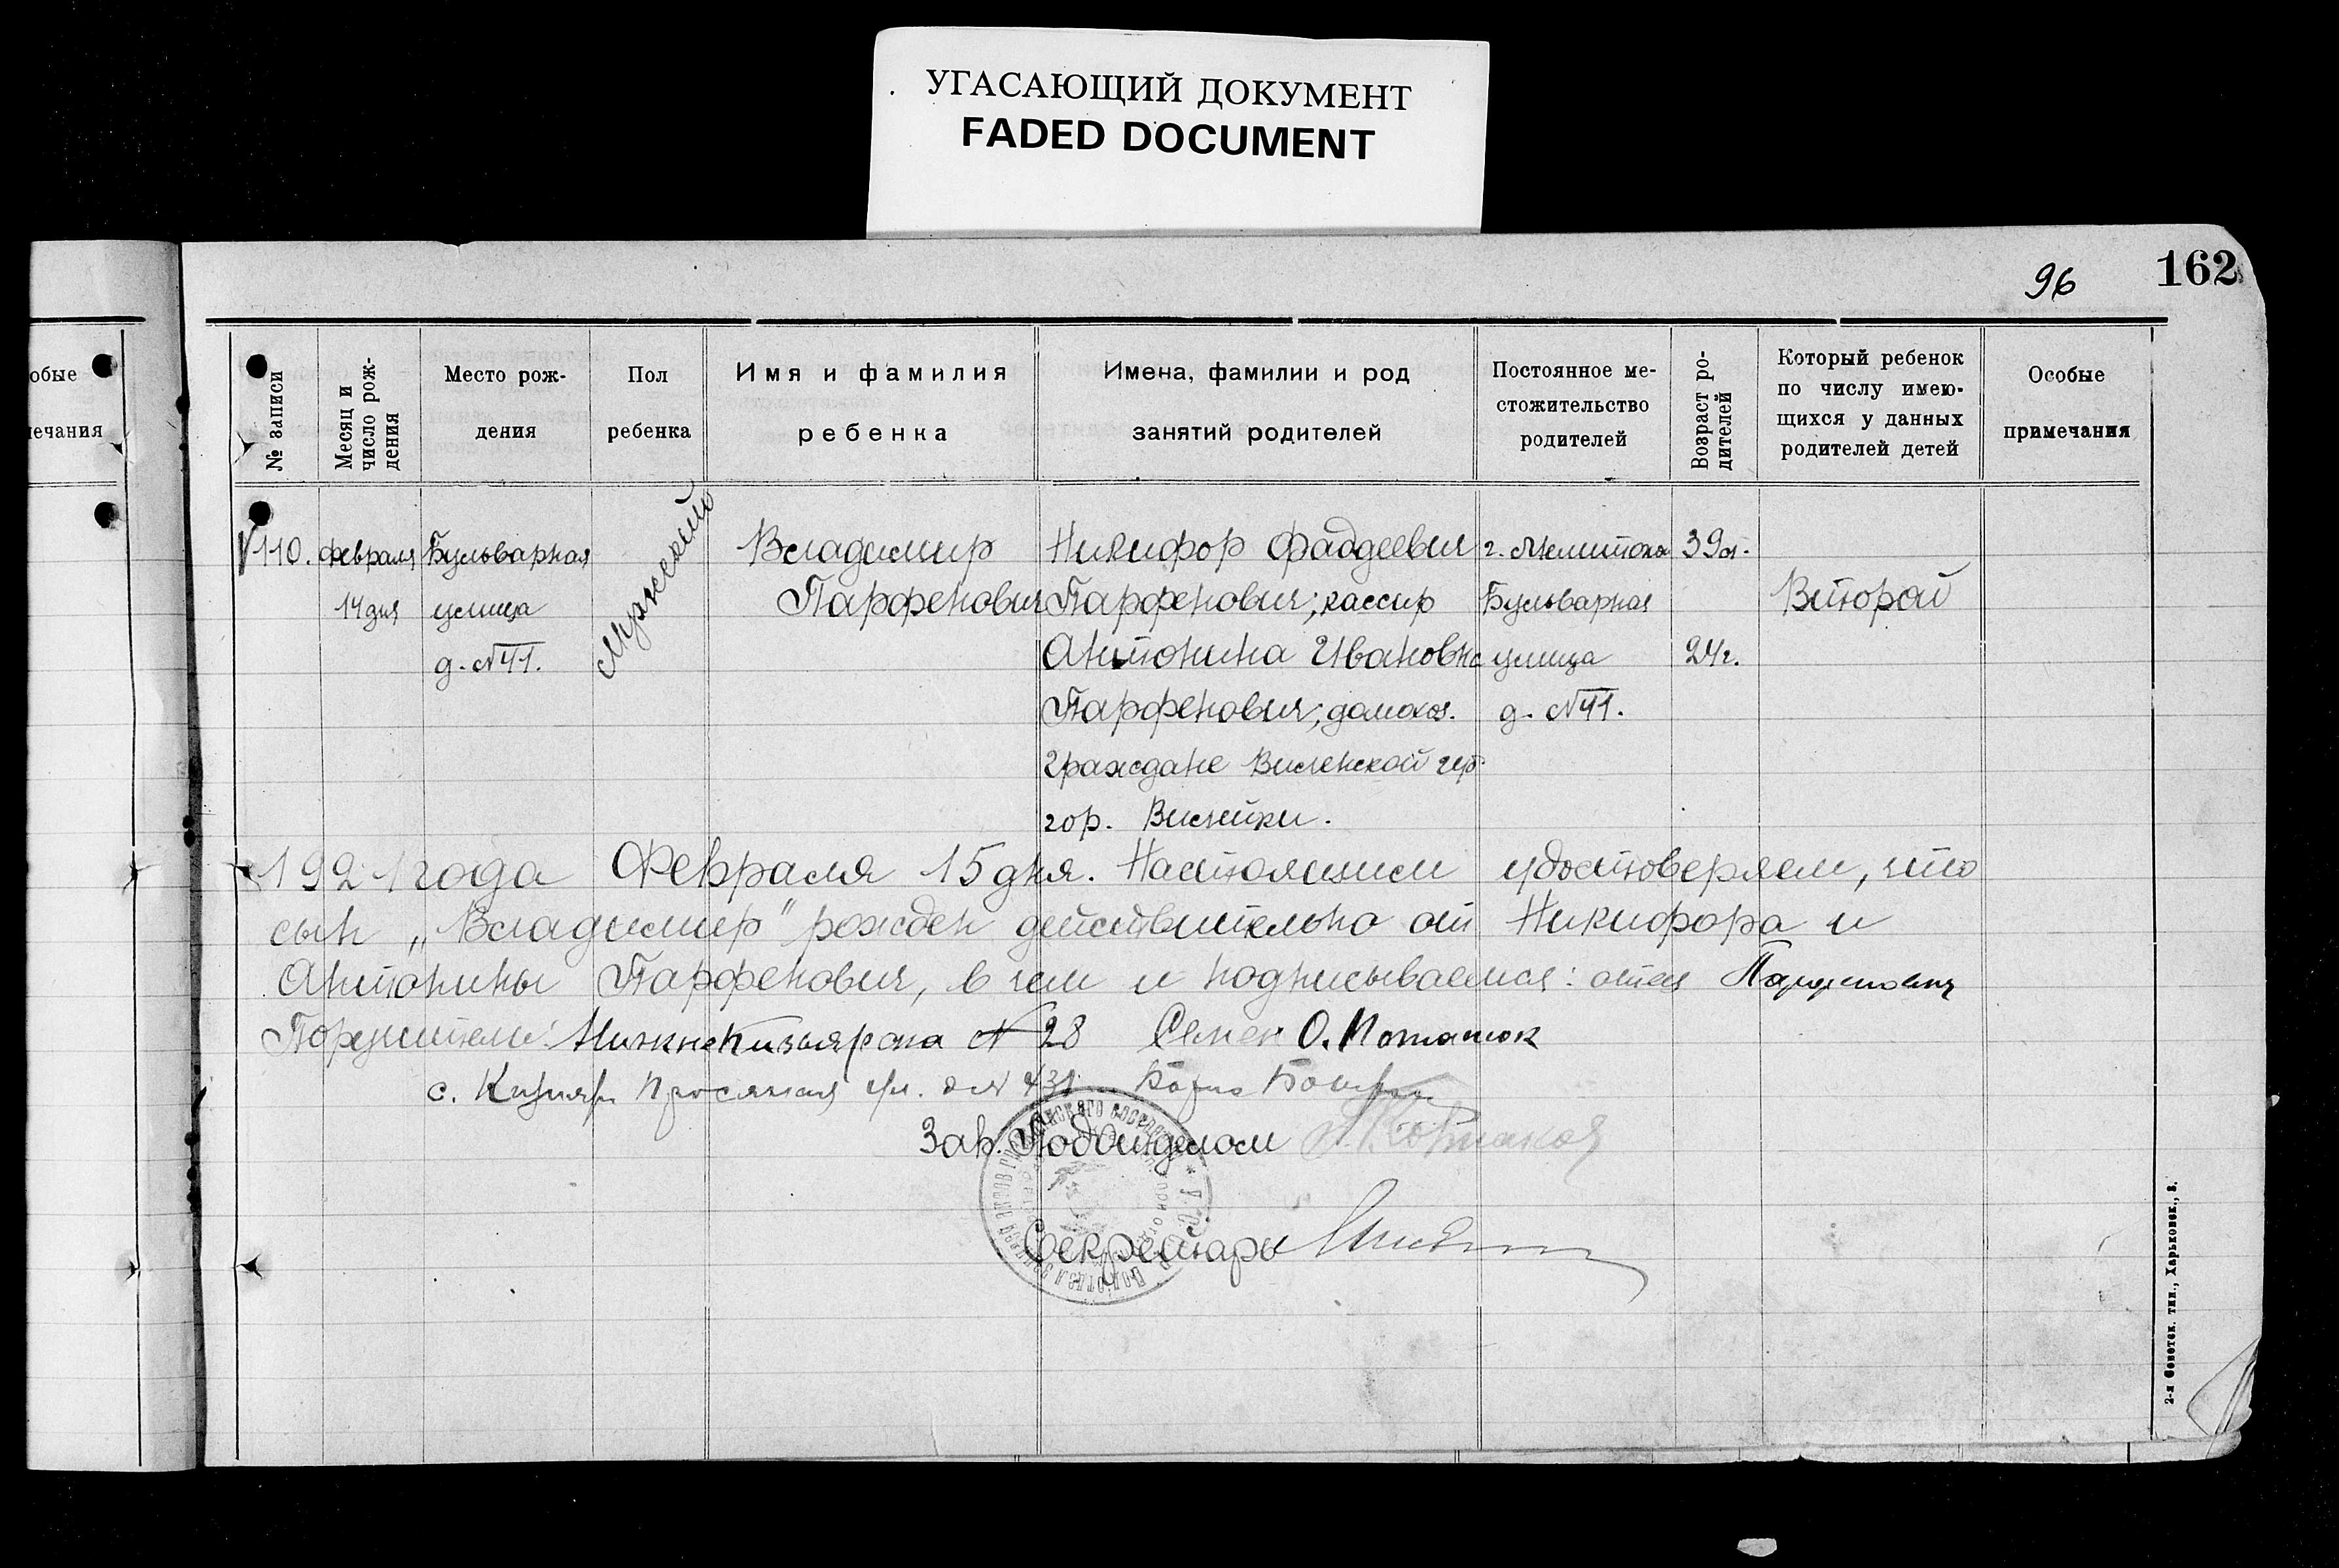 УГАСАЮЩИЙ ДОКУМЕНТ
FADED DOCUMENT
96
162
обые
мечания
№ записи
Месяц и
число рож-
дения
Место рож-
дения
Пол
ребенка
Имя и фамилия
ребенка
Имена, фамилии и род
занятий родителей
Постоянное ме-
стожительство
родителей
Возраст ро-
дителей
Который ребенок
по числу имею-
щихся у данных
родителей детей
Особые
примечания
110.
февраля
14 дня
Бульварная
улица
д. №41.
Мужской
Владимир
Парфенович
Никифор Фаддеевич
Парфенович; кассир
Антонина Ивановна
Парфенович; домохоз.
Граждане Виленской губ.
гор. Вилейки.
г. Мелитополь
Бульварная
улица
д. №41.
39л.
24г.
Второй
1921 года Февраля 15 дня. Настоящим удостоверяем, что
сын „Владимир" рожден действительно от Никифора и
Антонины Парфенович, в чем и подписываемся: отец Парфенович
Поручители: №28 Семен О. Поташок
с. Кизияр
Зав. Подотделом
Секретарь
2-я Советск. тип., Харьковск., 3.